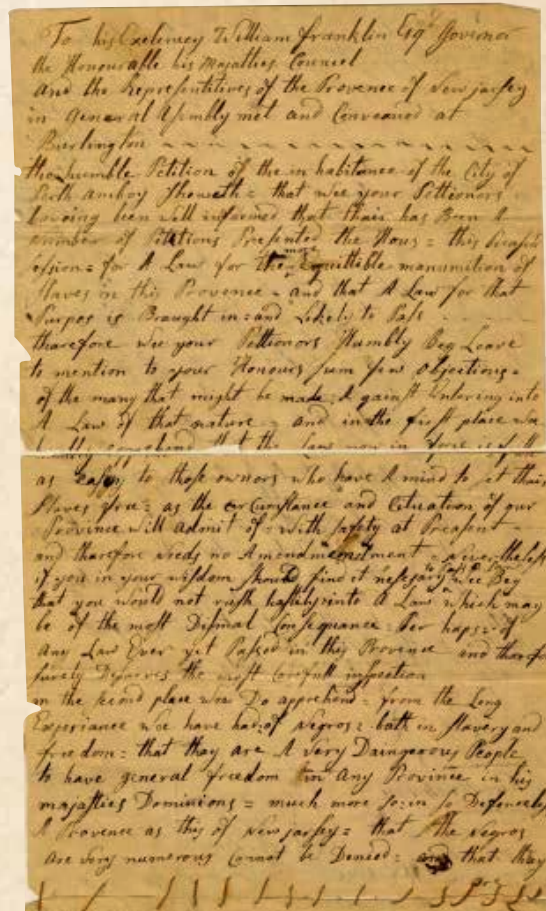 To his Exelency William franklin Esqr Governor
the Honourable his Majesties Councel
and the Representitives of the Provence of New jarsey
in General Asembly met and Conveaned at
Burlington
the humble Petition of the in habitance of the City of
Perth amboy Sheweth = that wee your Pettionors
haveing been well informed that thair has Been A
number of Petitions Presented the Hous = this
session = for A Law for the more Equittible manumition of
Slaves in this Provence - and that A Law for that
Purpos is Braught in = and Likely to Pass
therefore wee your Pettionors Humbly Beg Leave
to mention to your Honours sum few objections =
of the many that might be made = A gainst Entering into
A Law of that nature - and in the first place we
that the Law now in force is
as easey to those owners who have A mind to set thair
Slaves free = as the circumstance and Cituation of our
Province will admit of = with safety at Preasent -
and therefore needs no Amendment - neverthelest
if you in your wisdom should find it nessesary wee Beg
that you would not rush hastely into A Law which may
be of the most Dismal Consequance = Per haps = of
any Law Ever yet Passed in this Provence and therefor
surely Deserves the most carefull inspection
in the second place wee Do apprehend = from the Long
Experiance wee have had of negros = both in Slavery and
freedom = that thay are A very Daingerous People
to have general freedom in any Province in his
majasties Dominions = much more so = in so Defencely
A Provence as this of New jarsey = that the negros
are very numerous Cannot be Denied = and that thay
are